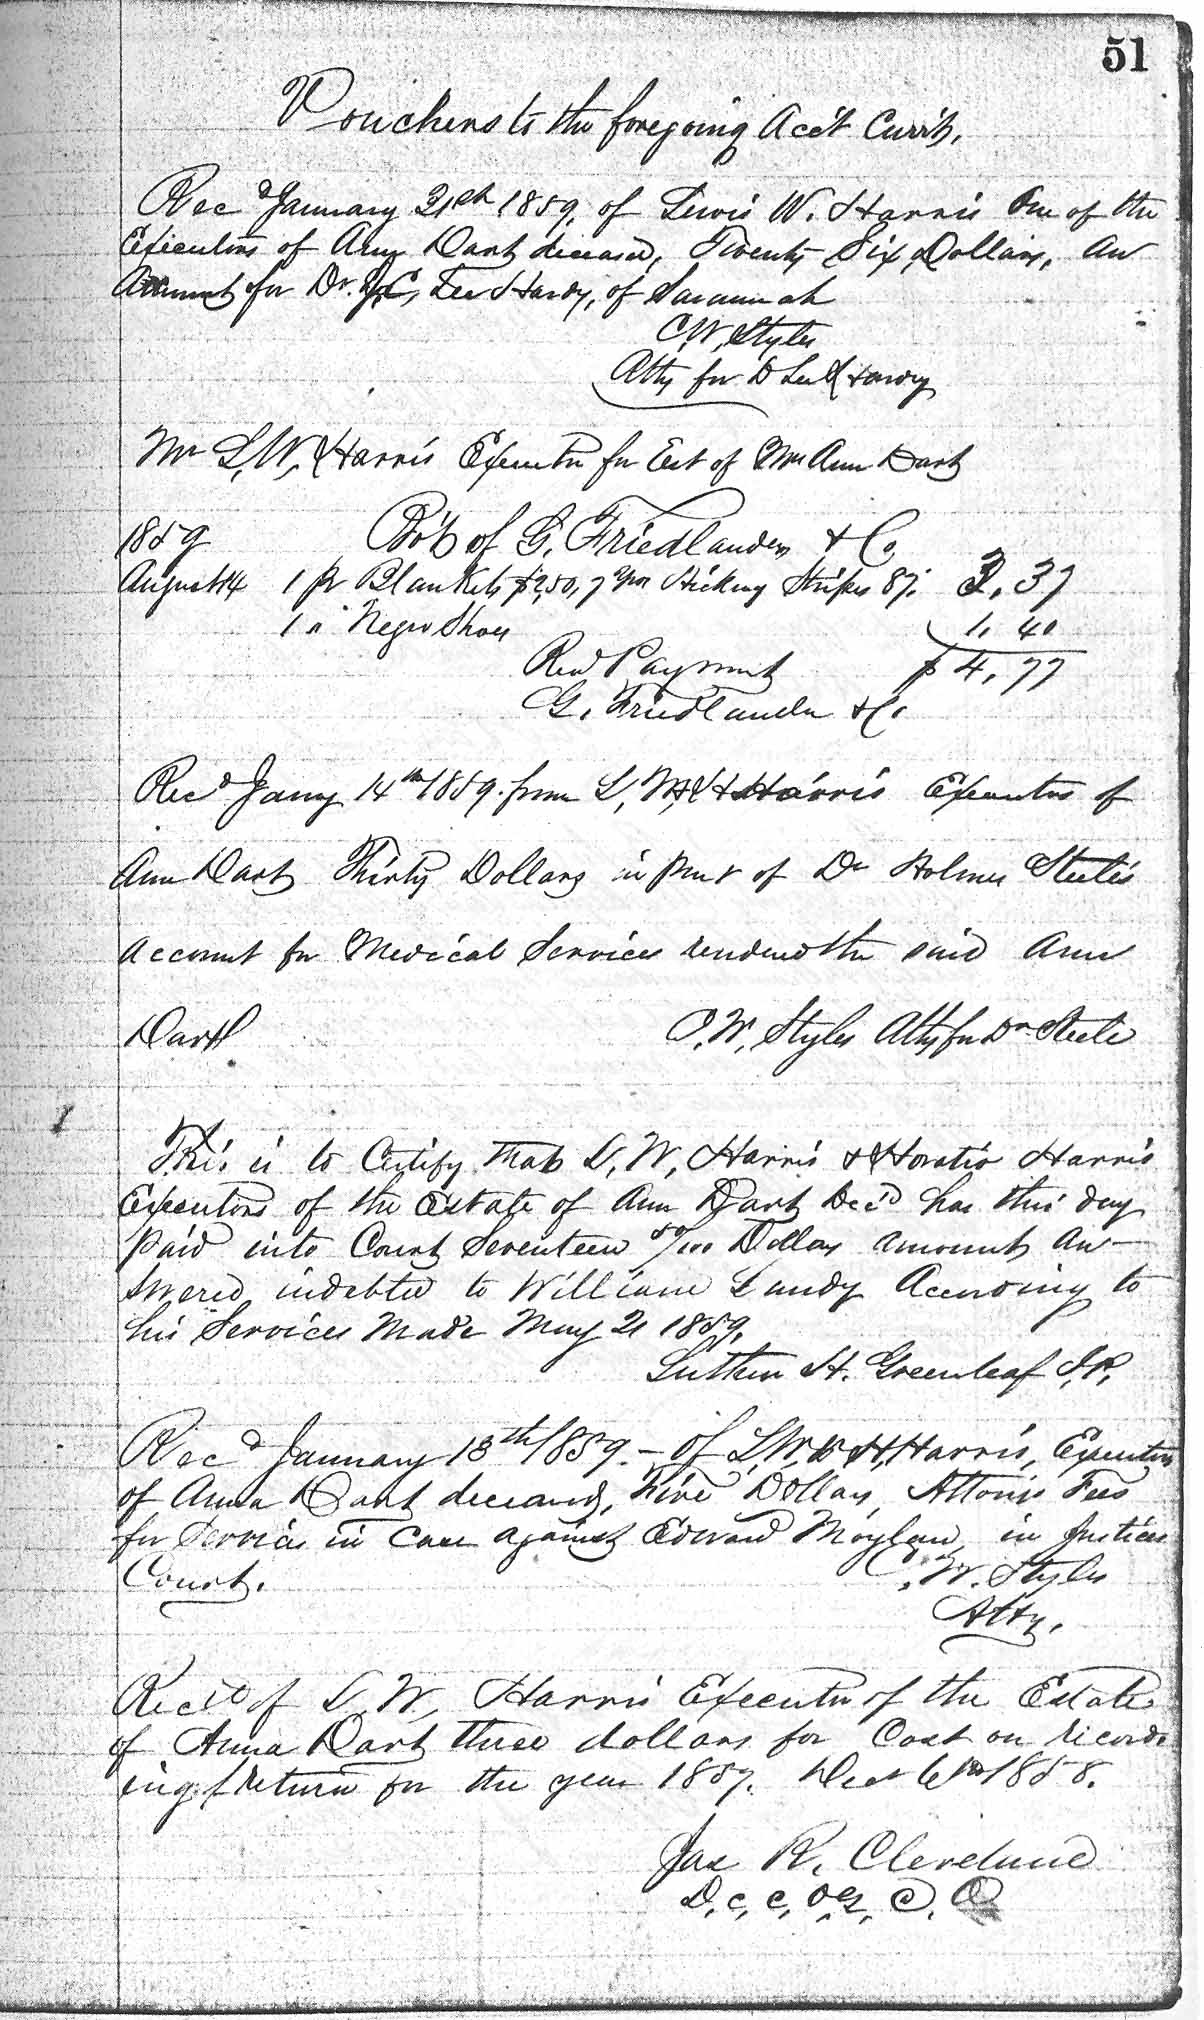 51
Vouchers to the foregoing Acct Currt.
Rec'd January 21st 1859, of Lewis W. Harris One of the
Executors of Ann Dart deceased, Twenty Six Dollars, an
Amount for Dr. Lee Hardy, of Savannah
C. W. Styles
Atty for D Lee Hardy
Mr L. W. Harris Executor for Est of Mrs Ann Dart
1859 Bot of G. Friedlander & Co.
August 14 1 pr Blankets $2,50, 7 yds Hickory Stripes 87. 3,37
1 " Negro Shoes 1,40
Recd Payment $4,77
G. Friedlander & Co.
Rec'd Jany 14th 1859. from L, W, & H Harris Executors of
Ann Dart Thirty Dollars in part of Dr Holmes Steele's
account for Medical Services rendered the said Ann
Dart C. W. Styles Atty for Dr Steele
This is to Certify that L, W, Harris & Horatio Harris
Executors of the Estate of Ann Dart Dec'd has this day
paid into Court Seventeen 50/100 Dollars amount An-
swered indebted to William Lundy According to
his Services Made May 21 1859.
Luther H. Greenleaf J.P.
Rec'd January 13th 1859 - of L. W. & H, Harris, Executors
of Anna Dart deceased, Five Dollars, Attorneys Fees
for Services in Case against Edward Moylan, in Justices
Court. C. W. Styles
Atty.
Recd of L. W. Harris Executor of the Estate
of Anna Dart three dollars for Cost on record-
ing return for the year 1857. Dec 6th 1858.
Jas R. Cleveland
D. C. C. O.